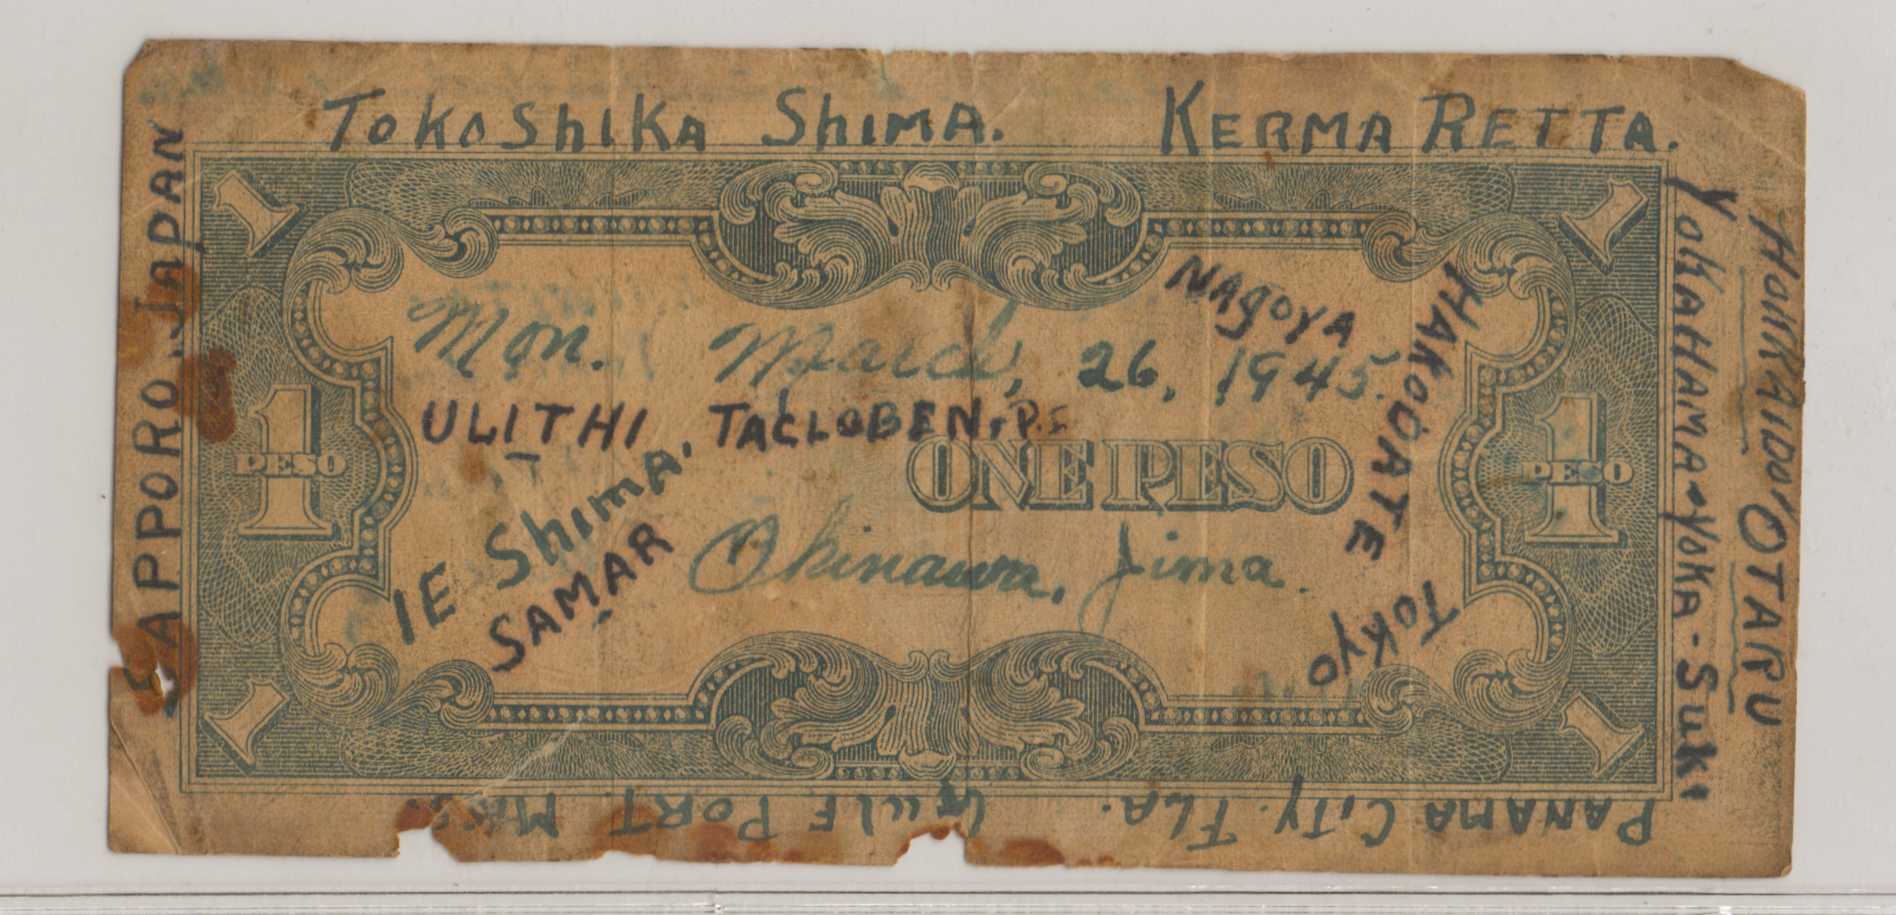 TOKOSHIKA SHIMA. KERMA RETTA.
SAPPORO. JAPAN
1
1
Mon. March, 26, 1945.
NAGOYA
HAKODATE TOKYO
ULITHI. TACLOBEN, P.I.
1
PESO
ONE PESO
1
PESO
IE SHIMA.
SAMAR
Okinawa, Jima.
YOKAHAMA - YOKA - SUKI
HOKKAIDO OTARU
1
1
PANAMA CITY. FLA. GULF PORT. MISS.